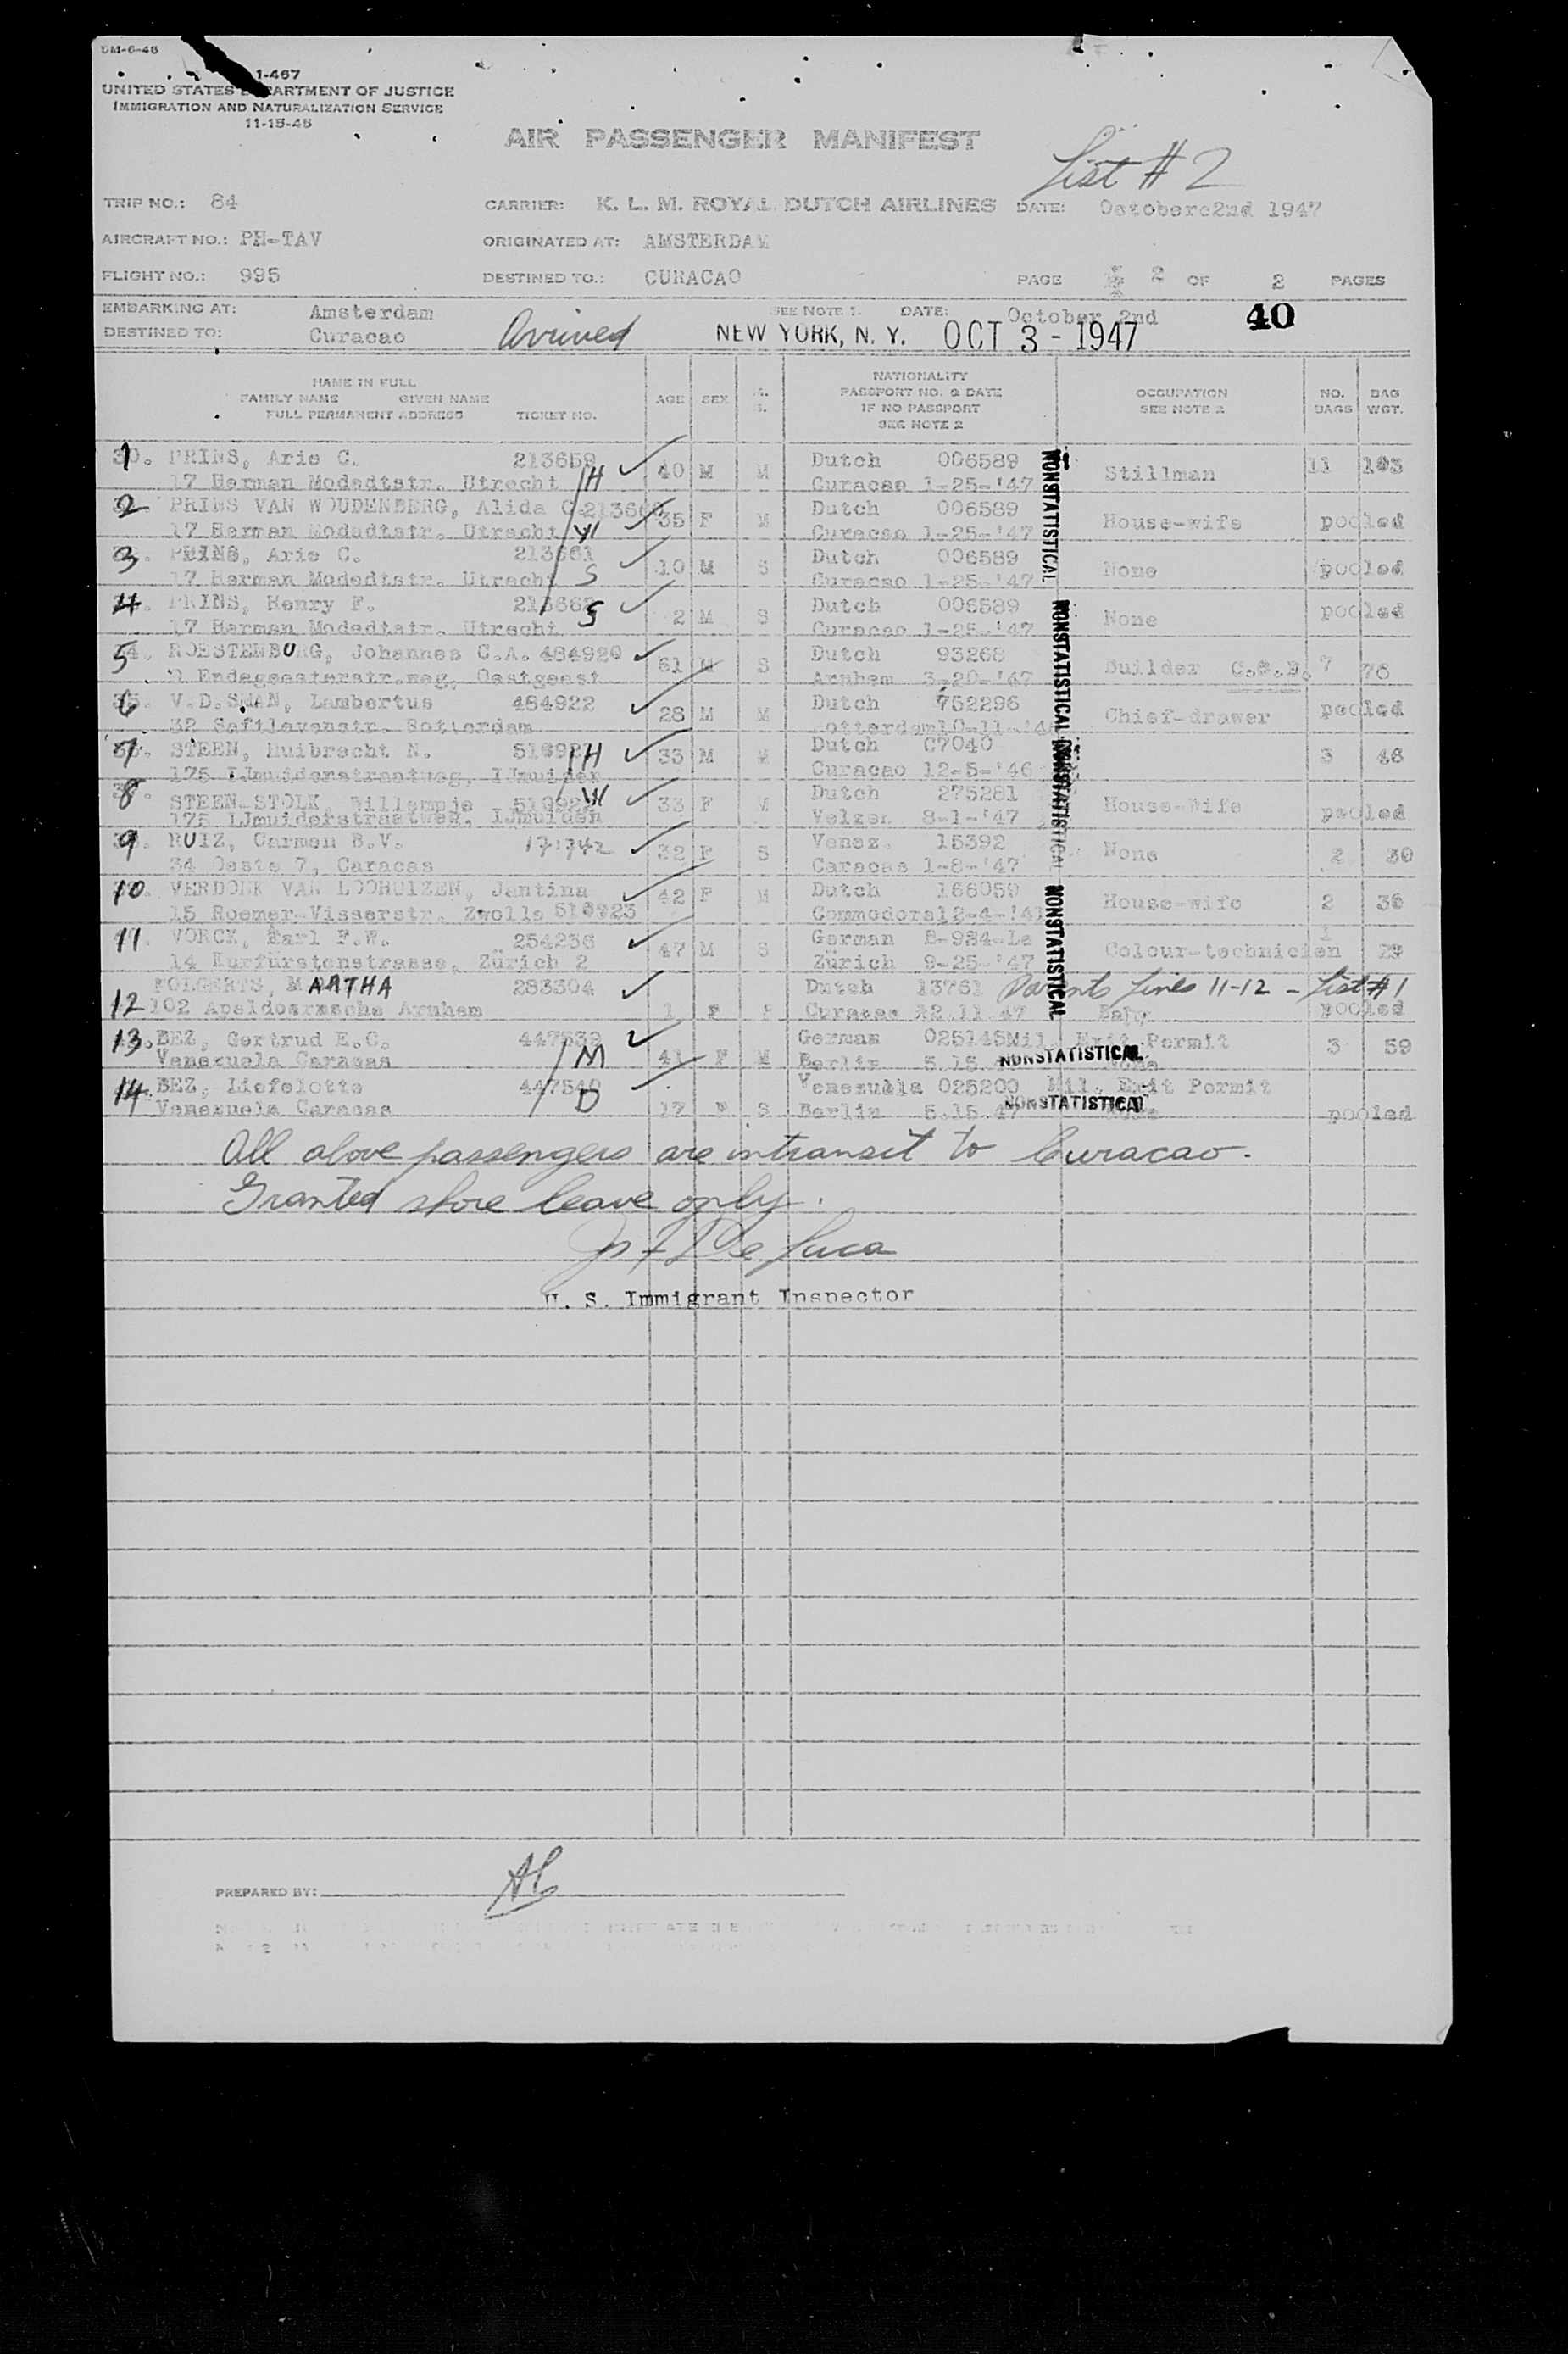 DM-6-46
1-467
UNITED STATES DEPARTMENT OF JUSTICE
IMMIGRATION AND NATURALIZATION SERVICE
11-15-45
AIR PASSENGER MANIFEST
List # 2
TRIP NO.: 84 CARRIER: K. L. M. ROYAL DUTCH AIRLINES DATE: Octoberc2nd 1947
AIRCRAFT NO.: PH-TAV ORIGINATED AT: AMSTERDAM
FLIGHT NO.: 995 DESTINED TO.: CURACAO PAGE 2 OF 2 PAGES
EMBARKING AT: Amsterdam SEE NOTE 1. DATE: October 2nd 40
DESTINED TO: Curacao Arrived NEW YORK, N. Y. OCT 3 - 1947
NAME IN FULL
FAMILY NAME GIVEN NAME
FULL PERMANENT ADDRESS TICKET NO.
AGE SEX M. S.
NATIONALITY
PASSPORT NO. & DATE
IF NO PASSPORT
SEE NOTE 2
OCCUPATION
SEE NOTE 2
NO. BAGS
BAG WGT.
1 PRINS, Arie C. 213659 H 40 M M Dutch 006589 Stillman 11 103
17 Herman Modedtstr. Utrecht Curacao 1-25-'47
2 PRINS VAN WOUDENBERG, Alida C. W 35 F M Dutch 006589 House-wife pooled
17 Herman Modedtstr. Utrecht Curacao 1-25-'47
3 PRINS, Arie C. 213661 S 10 M S Dutch 006589 None pooled
17 Herman Modedtstr. Utrecht Curacao 1-25-'47
4 PRINS, Henry F. 213662 S 2 M S Dutch 006589 None pooled
17 Herman Modedtstr. Utrecht Curacao 1-25-'47
5 ROESTENBURG, Johannes C.A. 484920 61 M S Dutch 93268 Builder 7 76
Endegeesterstr.weg, Oestgeest Arnhem 3-20-'47
6 V.D.SMAN, Lambertus 484922 28 M M Dutch 752296 Chief-drawer pooled
32 Saftlevenstr. Rotterdam
7 STEEN, Huibrecht N. H 33 M M Dutch C7040 3 46
175 IJmuiderstraatweg, IJmuiden Curacao 12-5-'46
8 STEEN-STOLK, Willempje W 33 F M Dutch 275281 House-Wife pooled
175 IJmuiderstraatweg, IJmuiden Velzen 8-1-'47
9 RUIZ, Carmen B.V. 32 F S Venez. 15392 None 2 30
34 Oeste 7, Caracas Caracas 1-8-'47
10 VERDONK VAN LOOHUIZEN, Jantina 42 F M Dutch 166059 House-wife 2 36
15 Roemer-Visserstr. Zwolle
11 VORCK, Earl F.W. 254236 47 M S German B-934-Le Colour-technicien 29
14 Kurfürstenstrasse, Zürich 2 Zürich 9-25-'47
12 FOLGERTS, MARTHA 283304 Dutch 13761 Parents Lines 11-12 - List #1
102 Apeldoornsche Arnhem 1 F Baby pooled
13. BEZ, Gertrud E.C. 447539 M 41 F M German 025145 Mil. Exit Permit 3 59
Venezuela Caracas Berlin 5.15.
14. BEZ, Liefelotte 447540 D 17 F S Venezuella 025200 Mil. Exit Permit
Venezuela Caracas Berlin 5.15.47 pooled
NONSTATISTICAL
NONSTATISTICAL
NONSTATISTICAL
NONSTATISTICAL
NONSTATISTICAL
NONSTATISTICAL
All above passengers are intransit to Curacao.
Granted shore leave only.
De Luca
U. S. Immigrant Inspector
PREPARED BY: